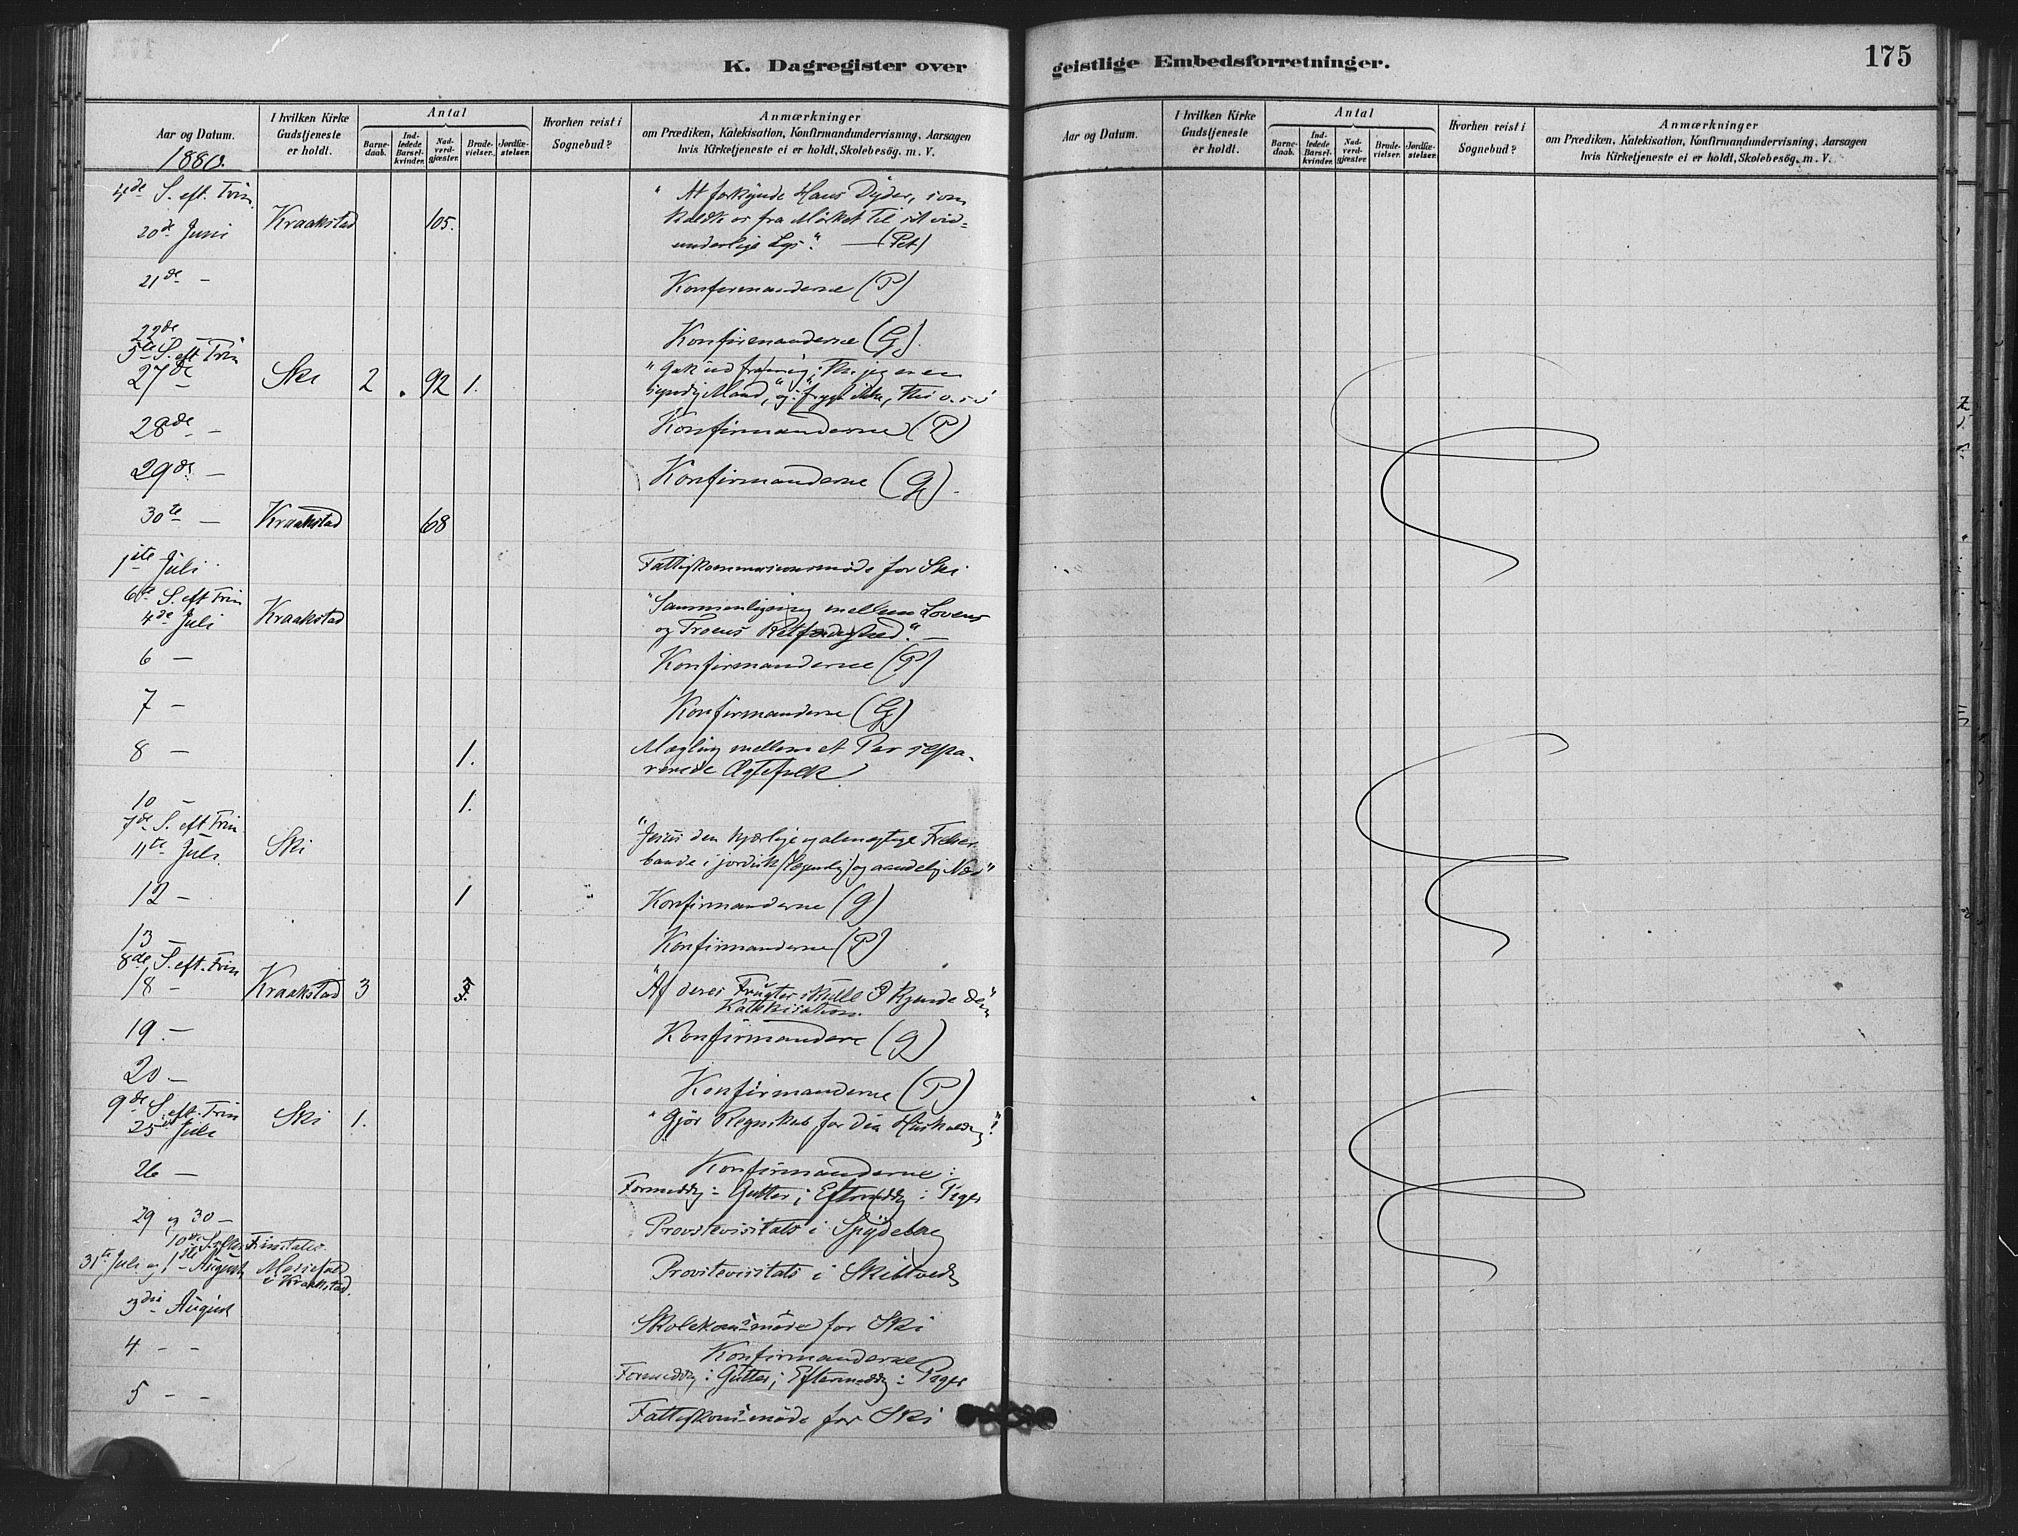 K. Dagregister over geistlige Embedsforretninger. 175
Aar og Datum. I hvilken Kirke Gudstjeneste er holdt. Antal Barnedaab. Indledede Barselkvinder. Nadverdgjæster. Brudevielser. Jordfæstelser. Hvorhen reist i Sognebud? Anmærkninger om Prædiken, Katekisation, Konfirmandundervisning, Aarsagen hvis Kirketjeneste ei er holdt, Skolebesög. m. V.
Aar og Datum. I hvilken Kirke Gudstjeneste er holdt. Antal Barnedaab. Indledede Barselkvinder. Nadverdgjæster. Brudevielser. Jordfæstelser. Hvorhen reist i Sognebud? Anmærkninger om Prædiken, Katekisation, Konfirmandundervisning, Aarsagen hvis Kirketjeneste ei er holdt, Skolebesög. m. V.
1880.
4de S. eft. Trin. "At forkynde Hans Dyder, som
20de Juni Kraakstad 105. kaldte os fra Mörket til sit vid=
underlige Lys". — (Pet)
21de - Konfirmanderne (P)
22de - Konfirmanderne (G).
5te S. eft Trin
27de Ski 2 . 92 1. "Gak ud fra mig; Thi jeg er en
syndig Mand," og: "frygt ikke, Thi
28de - Konfirmanderne (P)
29de - Konfirmanderne (G).
30te - Kraakstad 68
1ste Juli Fattigkommissionsmöde for Ski
6te S. eft Trin "Sammenligning mellem Lovens
4de Juli Kraakstad og Troens Retfærdighed." —
6 - Konfirmanderne (P)
7 - Konfirmanderne (G)
8 - 1. Mægling mellem et Par sepa-
rerede Ægtefolk
10 - 1.
7de S. eft Trin. "Jesus den kjærlige og almægtige Frelser
11te Juli Ski baade i jordisk (legemlig) og aandelig Nød"
12 - 1 Konfirmanderne (G)
13 - Konfirmanderne (P)
8de S. eft. Trin
18 - Kraakstad 3 "Af deres Frugter skulle I kjende dem"
Katekisation.
19 - Konfirmandere (G)
20 - Konfirmanderne (P)
9de S. eft. Trin
25de Juli Ski 1. "Gjör Regnskab for din Husholdng".
26 - Konfirmanderne:
Formiddg: Gutter; Eftermiddg: Piger
29 og 30 - Provstevisitats i Spydeberg
10de S. efter Trinitatis.
31te Juli og 1ste August Messefald i Kraakstad. Provstevisitats i Skibtvedt
3die August Skolekoms möde for Ski
4 - - Konfirmanderne
Formiddg: Gutter; Eftermiddg: Piger
5 - - Fattigkoms möde for Ski